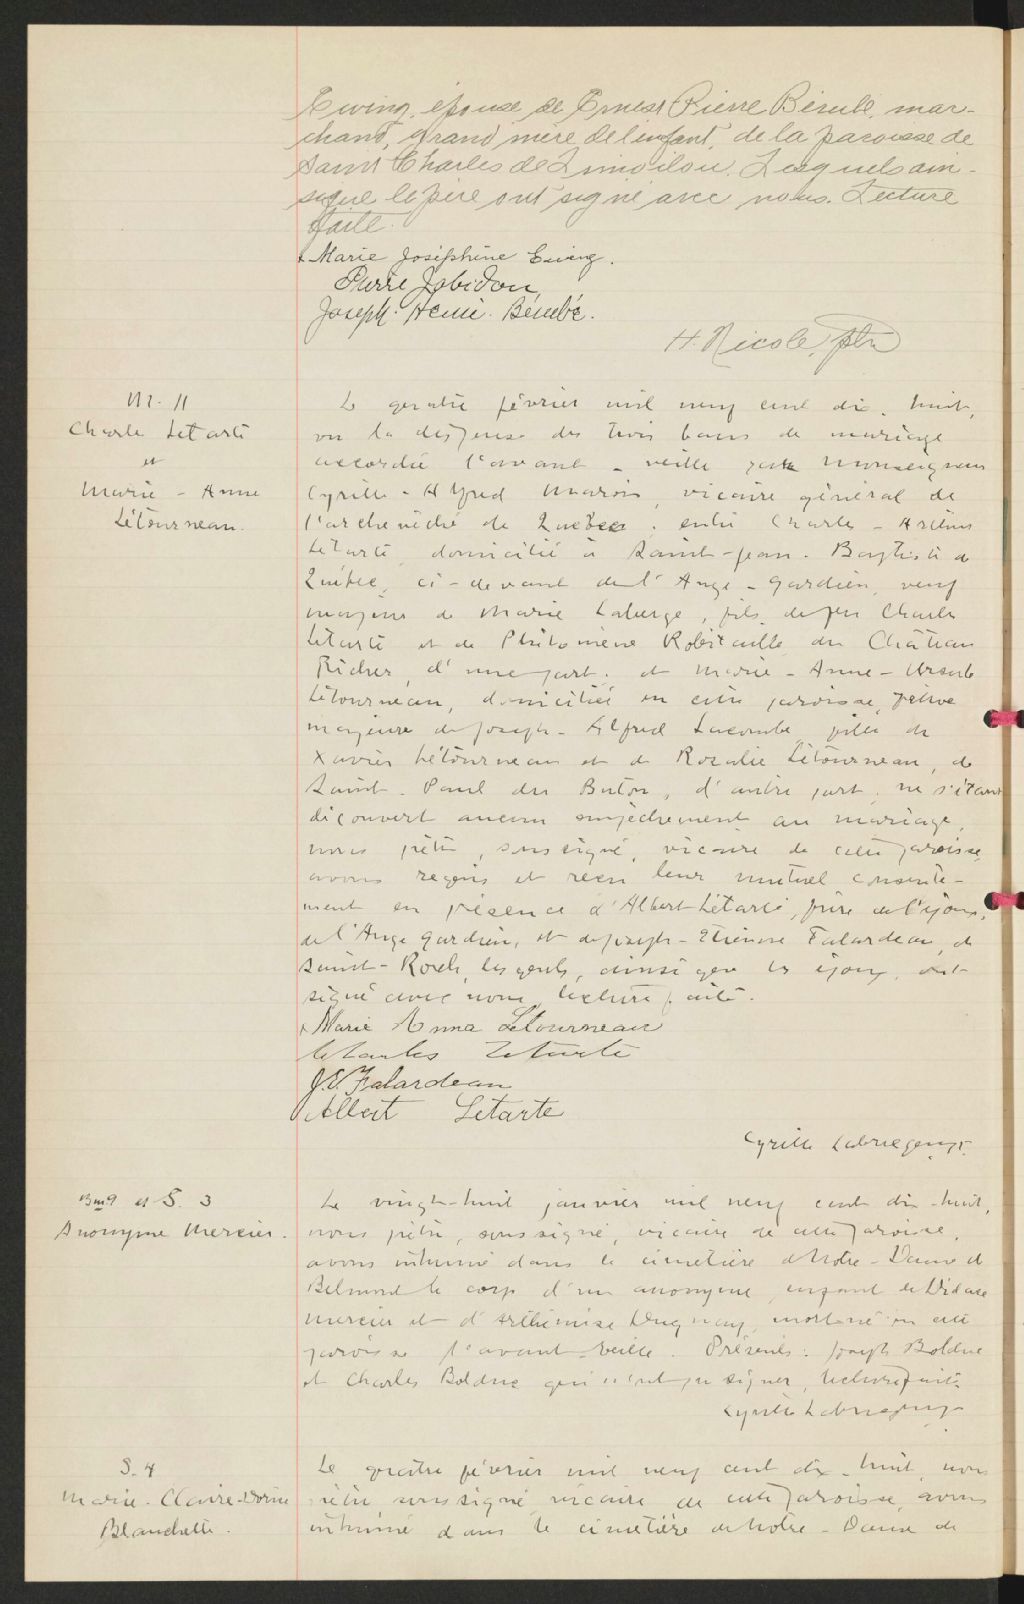 Ewing, épouse de Ernest Pierre Bérubé, mar-
chand, grand'mère de l'enfant, de la paroisse de
Saint Charles de Limoilou. Lesquels ain-
si que le père ont signé avec nous. Lecture
faite.
Marie Joséphine Ewing.
Pierre Jobidon
Joseph. Henri. Bérubé.
H. Nicole, ptre
M. 11
Charle Letarte
et
Marie - Anne
Létourneau.
Le quatre février mil neuf cent dix-huit,
vu la dispense des trois bans de mariage
accordée l'avant-veille par Monseigneur
Cyrille-Alfred Marois, vicaire général de
l'archevêché de Québec; entre Charle-
Letarte domicilié à Saint-Jean-Baptiste de
Québec, ci-devant de l'Ange-Gardien, veuf
majeur de Marie Laberge, fils de feu Charle
Letarte et de Philomène Robitaille du Château
Richer, d'une part; et Marie-Anne-Ursule
Létourneau, domiciliée en cette paroisse, veuve
majeure de Joseph-Alfred Lacombe, fille de
Xavier Létourneau et de Rosalie Létourneau, de
Saint-Paul du Buton, d'autre part; ne s'étant
découvert aucun empêchement au mariage,
nous prêtre, soussigné, vicaire de cette paroisse,
avons requis et reçu leur mutuel consente-
ment en présence d'Albert Létarte, frère de l'époux,
de l'Ange Gardien, et de Joseph-Etienne Falardeau, de
Saint-Roch, lesquels, ainsi que les époux, ont
signé avec nous, lecture faite.
Marie Anna Letourneau
Charles Letarte
J.E. Falardeau
Albert Letarte
Cyrille Labrecque, ptr.
Bm9 et S. 3
Anonyme Mercier.
Le vingt-huit janvier mil neuf cent dix-huit,
nous prêtre, soussigné, vicaire de cette paroisse,
avons inhumé dans le cimetière de Notre-Dame de
Belmont le corps d'un anonyme enfant de Didace
Mercier et d'Arthémise Duguay, mort-né en cette
paroisse l'avant-veille. Présents: Joseph Bolduc
et Charles Bolduc qui n'ont pu signer, lecture faite.
Cyrille Labrecque, ptr
S. 4
Marie-Claire-Dorine
Blanchette.
Le quatre février mil neuf cent dix-huit, nous
prêtre soussigné, vicaire de cette paroisse, avons
inhumé dans le cimetière de Notre-Dame de